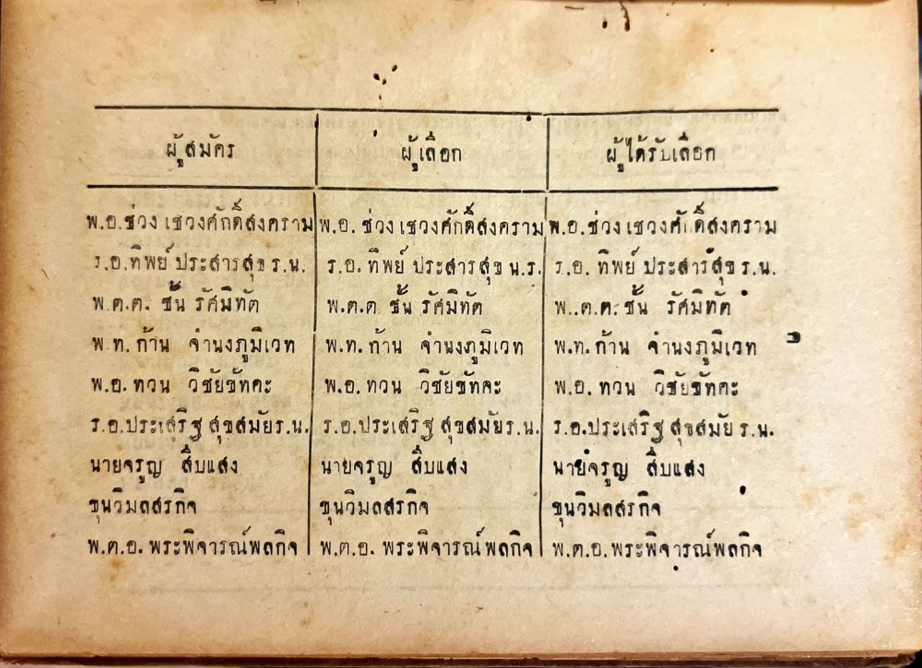 ผู้สมัคร ผู้เลือก ผู้ได้รับเลือก
พ.อ.ช่วง เชวงศักดิ์สงคราม พ.อ. ช่วง เชวงศักดิ์สงคราม พ.อ.ช่วง เชวงศักดิ์สงคราม
ร.อ.ทิพย์ ประสารสุข ร.น. ร.อ. ทิพย์ ประสารสุข น.ร. ร.อ. ทิพย์ ประสารสุข ร.น.
พ.ต.ต. ชั้น รัศมิทัต พ.ต.ต ชั้น รัศมิทัต พ.ต.ต. ชั้น รัศมิทัต
พ.ท. ก้าน จำนงภูมิเวท พ.ท. ก้าน จำนงภูมิเวท พ.ท. ก้าน จำนงภูมิเวท
พ.อ. ทวน วิชัยขัทคะ พ.อ. ทวน วิชัยขัทคะ พ.อ. ทวน วิชัยขัทคะ
ร.อ.ประเสริฐ สุขสมัย ร.น. ร.อ.ประเสริฐ สุขสมัย ร.น. ร.อ.ประเสริฐ สุขสมัย ร.น.
นายจรูญ สืบแสง นายจรูญ สืบแสง นายจรูญ สืบแสง
ขุนวิมลสรกิจ ขุนวิมลสรกิจ ขุนวิมลสรกิจ
พ.ต.อ. พระพิจารณ์พลกิจ พ.ต.อ. พระพิจารณ์พลกิจ พ.ต.อ. พระพิจารณ์พลกิจ